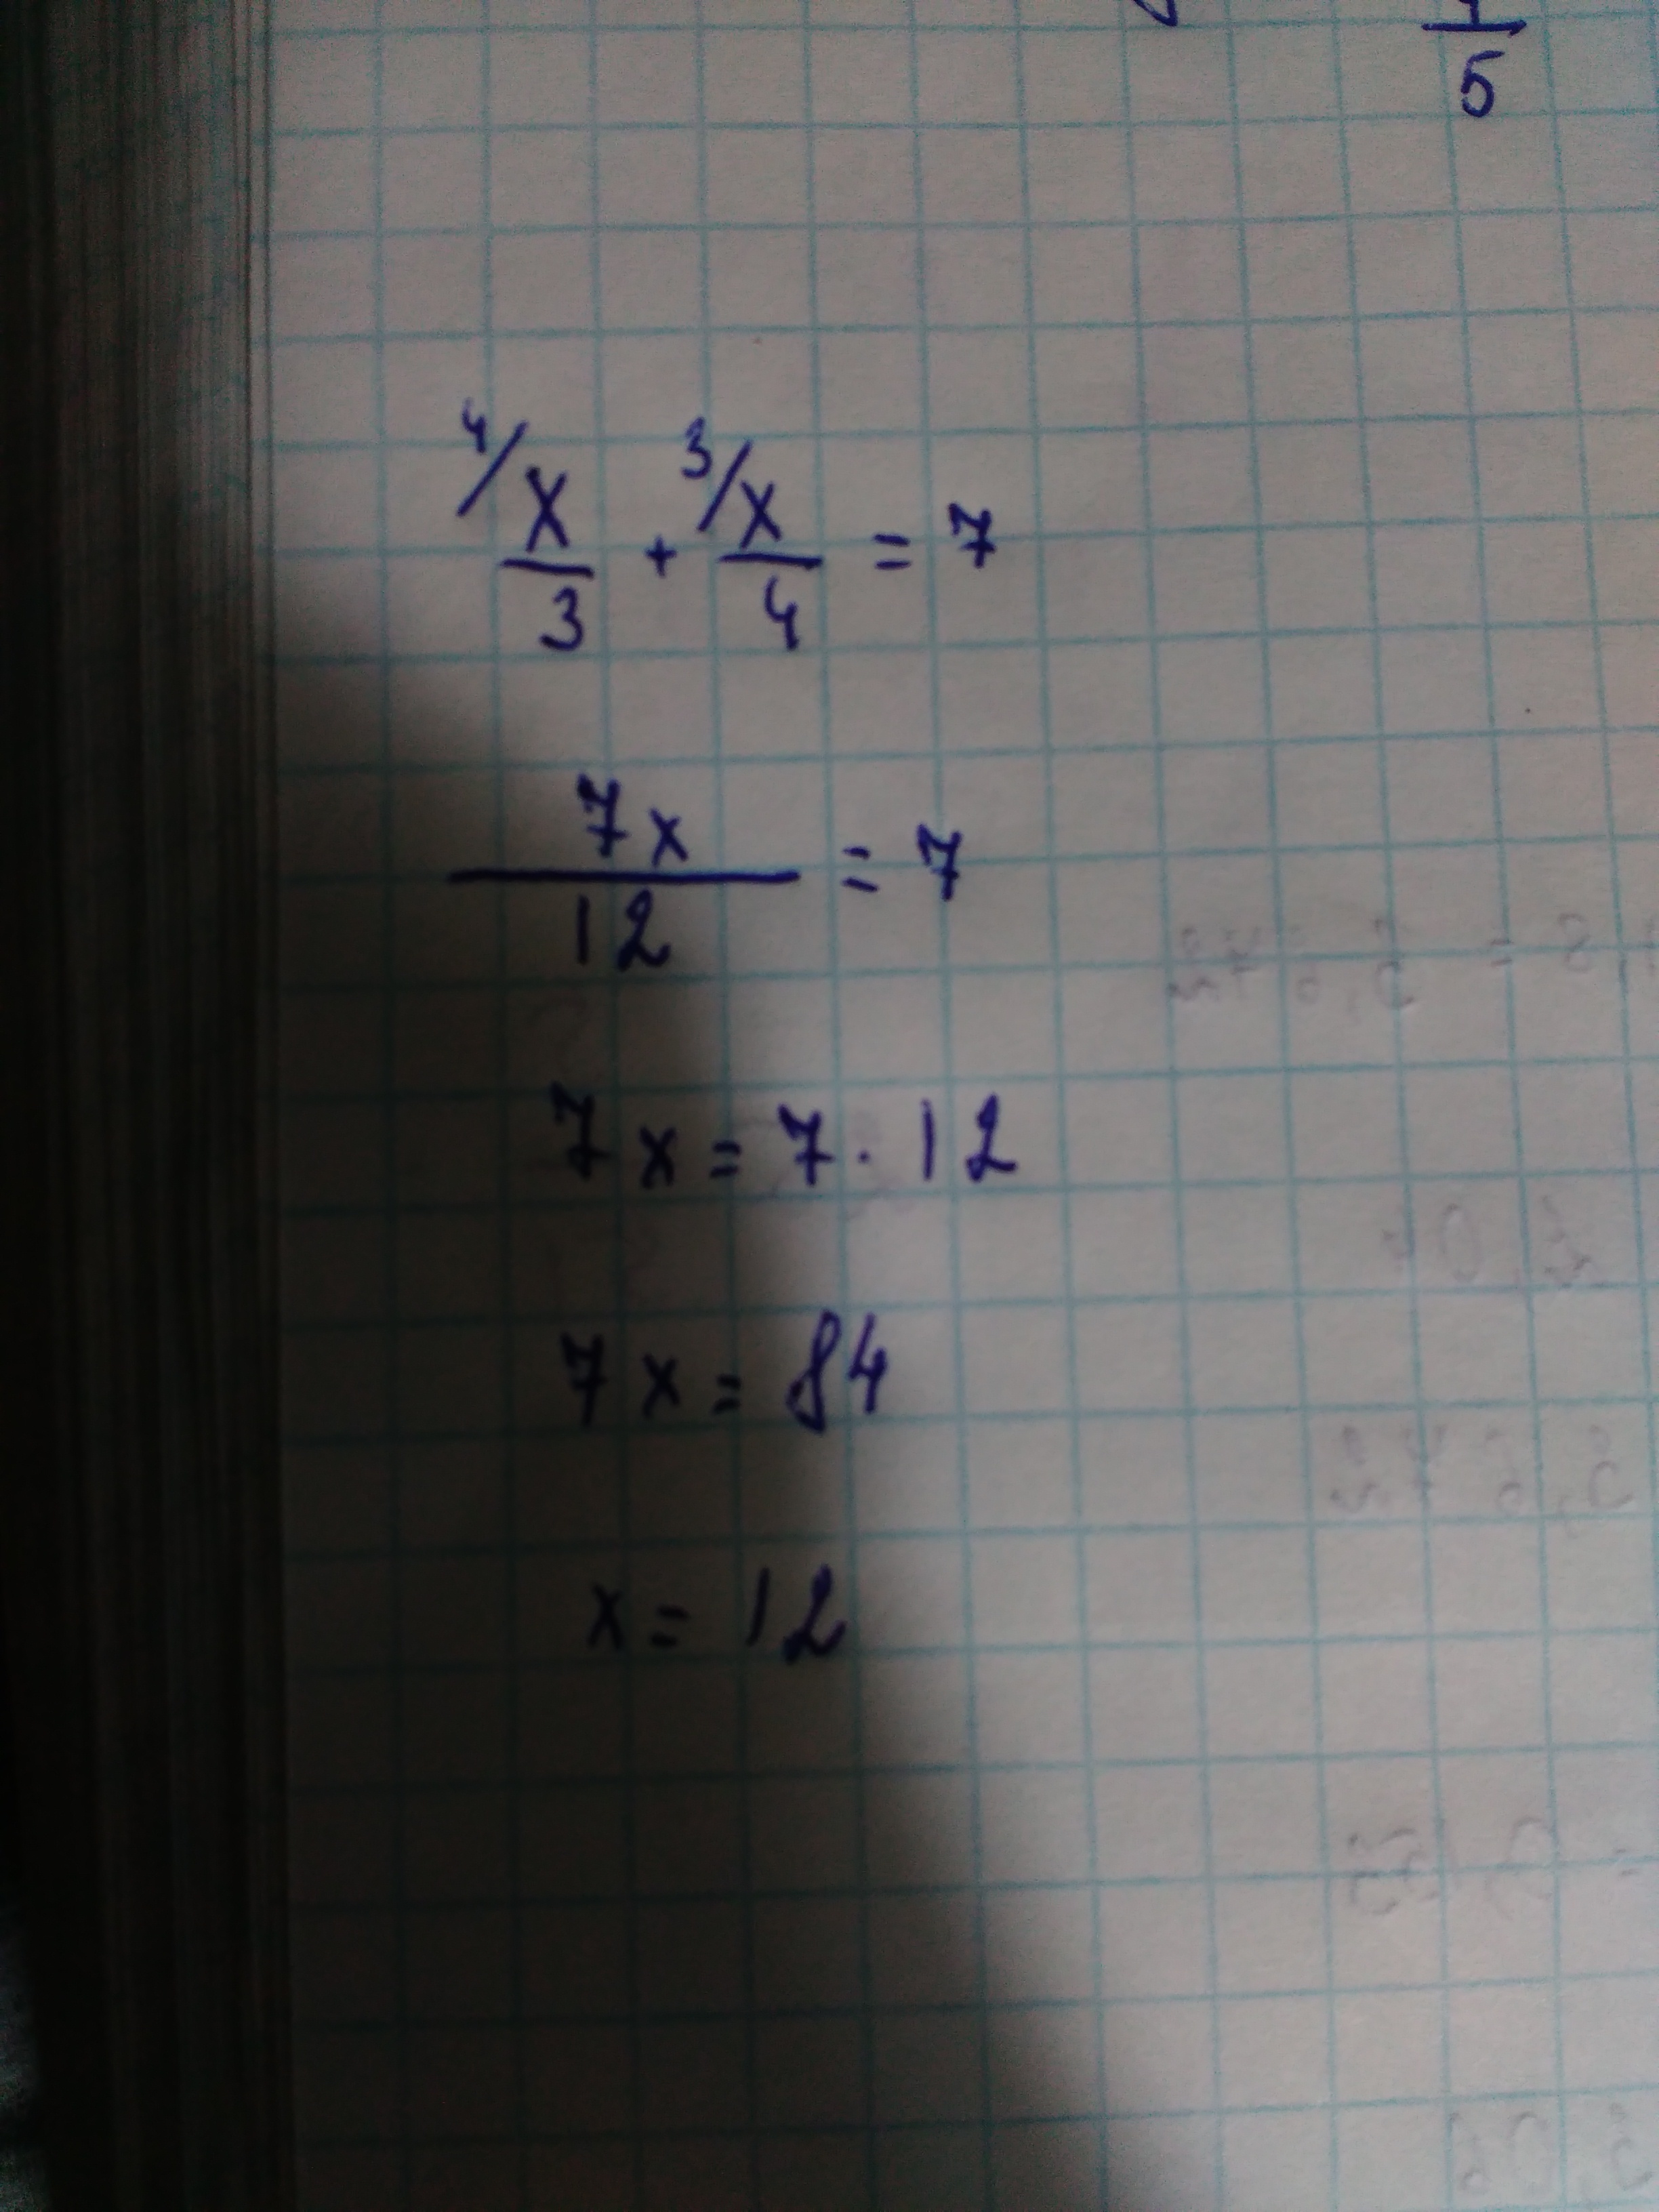 5
4/ x/3 + 3/ x/4 = 7
7x/12 = 7
7x = 7 · 12
7x = 84
x = 12